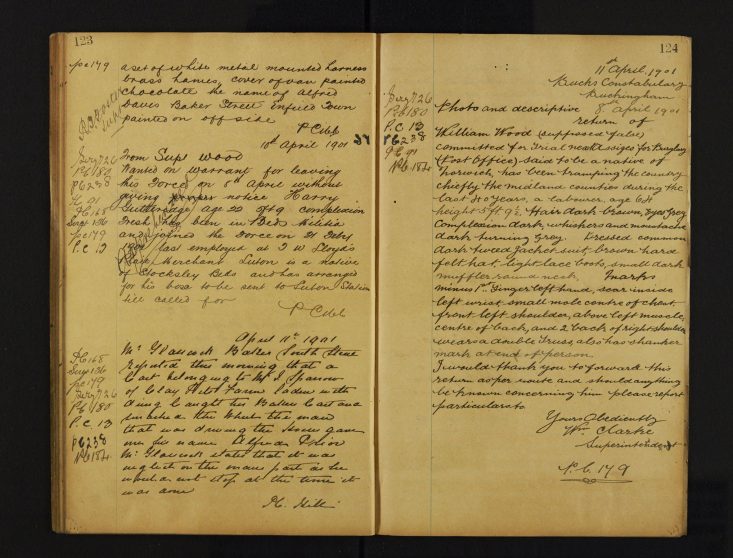 123
pc 179
a set of white metal mounted harness
brass hames, cover of van painted
chocolate the name of Alfred
Davis Baker Street Enfield Town
painted on off side
P Cibb
10th April 1901
Serg 726
Pc 180
P6238
H 91
PC 168
Serg 136
pc 179
P.C. 13
From Supt Wood
Wanted on warrant for leaving
his Force on 8th April without
giving proper notice Harry
Gutteridge age 22 5ft 9 complexion
fresh has been in Beds Militia
and joined the Force on 21 Feby
1901 last employed at J W Lloyds
Merchant Luton is a native
of Stocksley Beds and has arranged
for his box to be sent to Luton Station
till called for
P Cibb
April 11th 1901
PC 168
Serg 136
pc 179
Serg 726
Pc 180
P.C. 13
P6238
Pc 184
Mr Glascock Baker South Street
Reported this morning that a
Cart belonging to Mr J Sparrow
of Clay Hill Farm laden with
dung caught his Bakers Cart and
the wheel the man
that was driving the horse gave
me for name Alfred Prior
Mr Glascock states that it was
neglect on the mans part as he
would not stop at the time it
was done
H. Hill
124
11th April, 1901
Bucks Constabulary
Buckingham
8th April 1901
Serg 726
Pc 180
P.C. 13
P6238
PC 91
Pc 184
Photo and descriptive
return of
William Wood (supposed false)
committed for Trial next Assizes for Burglary
(Post Office) said to be a native of
Norwich, has been tramping the country
chiefly the midland counties during the
last 20 years, a labourer, age 64
height 5ft 9½ Hair dark brown, Eyes Grey
Complexion dark, whiskers and moustache
dark turning Grey. Dressed common
dark tweed Jacket suit, brown hard
felt hat, light lace boots, small dark
muffler round neck. Marks
minus 1st finger left hand, scar inside
left wrist, small mole centre of chest
front left shoulder, above left muscle,
centre of back, and 2 back of right shoulder
wears a double truss, also has shanker
mark at end of person.
I would thank you to forward this
return as per route and should anything
be known concerning him please report
particulars to
Yours Obediently
Wm. Clarke
Superintendent
P.C. 179